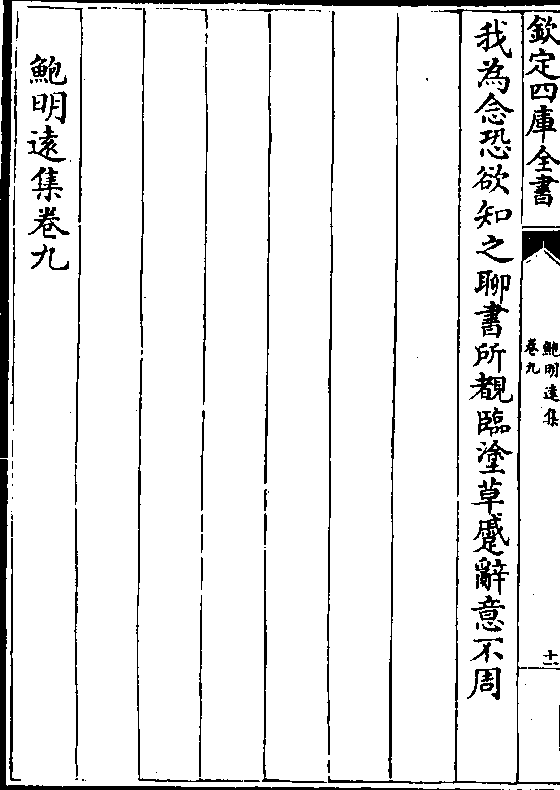 欽定四庫全書
鮑明逺集
卷九
十一
我為念恐欲知之聊書所覩臨塗草蹙辭意不周
鮑明逺集卷九